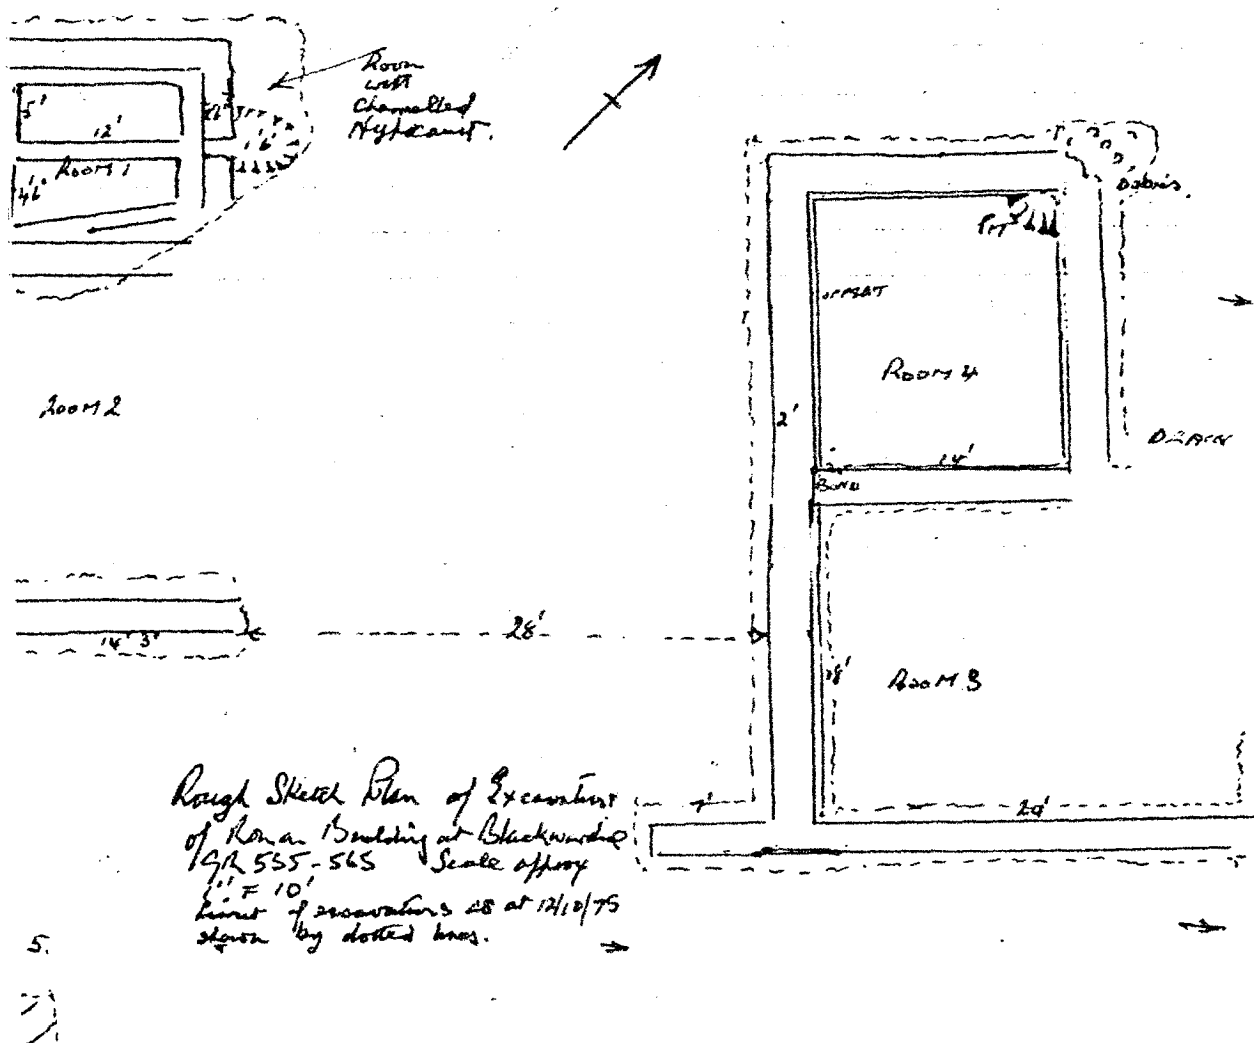 Room
with
Channelled
Hypocaust.
5'
12'
ROOM 1
4'6"
6'
Debris.
PIT
OFFSET
ROOM 4
ROOM 2
2'
14'
DRAIN
28'
14' 3"
18'
ROOM 3
20'
7'
Rough Sketch Plan of Excavations
of Roman Building at Blackwardine
GR 535-565 Scale approx
1" = 10'
Limit of excavations as at 12/10/75
shown by dotted lines.
5.